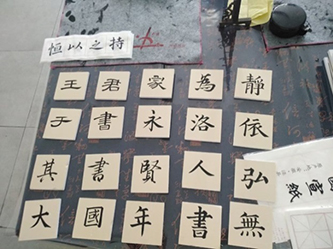 持之以恒
王君家為靜
于書永洛依
其書賢人弘
大國年書無